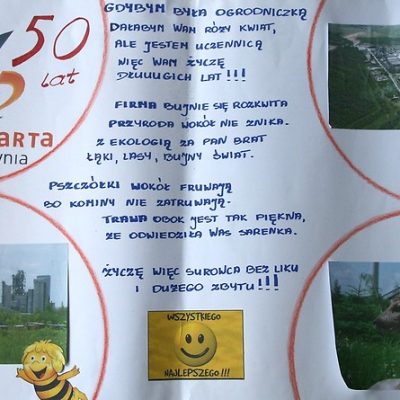 GDYBYM BYŁA OGRODNICZKĄ
DAŁABYM WAM RÓŻY KWIAT,
ALE JESTEM UCZENNICĄ
WIĘC WAM ŻYCZĘ
DŁUUUGICH LAT!!!
50
lat
ARTA
YNIA
FIRMA BUJNIE SIĘ ROZKWITA
PRZYRODA WOKÓŁ NIE ZNIKA.
Z EKOLOGIĄ ZA PAN BRAT
ŁĄKI, LASY, BUJNY ŚWIAT.
PSZCZÓŁKI WOKÓŁ FRUWAJĄ
BO KOMINY NIE ZATRUWAJĄ.
TRAWA OBOK JEST TAK PIĘKNA,
ŻE ODWIEDZIŁA WAS SARENKA.
ŻYCZĘ WIĘC SUROWCA BEZ LIKU
I DUŻEGO ZBYTU!!!
WSZYSTKIEGO
NAJLEPSZEGO!!!